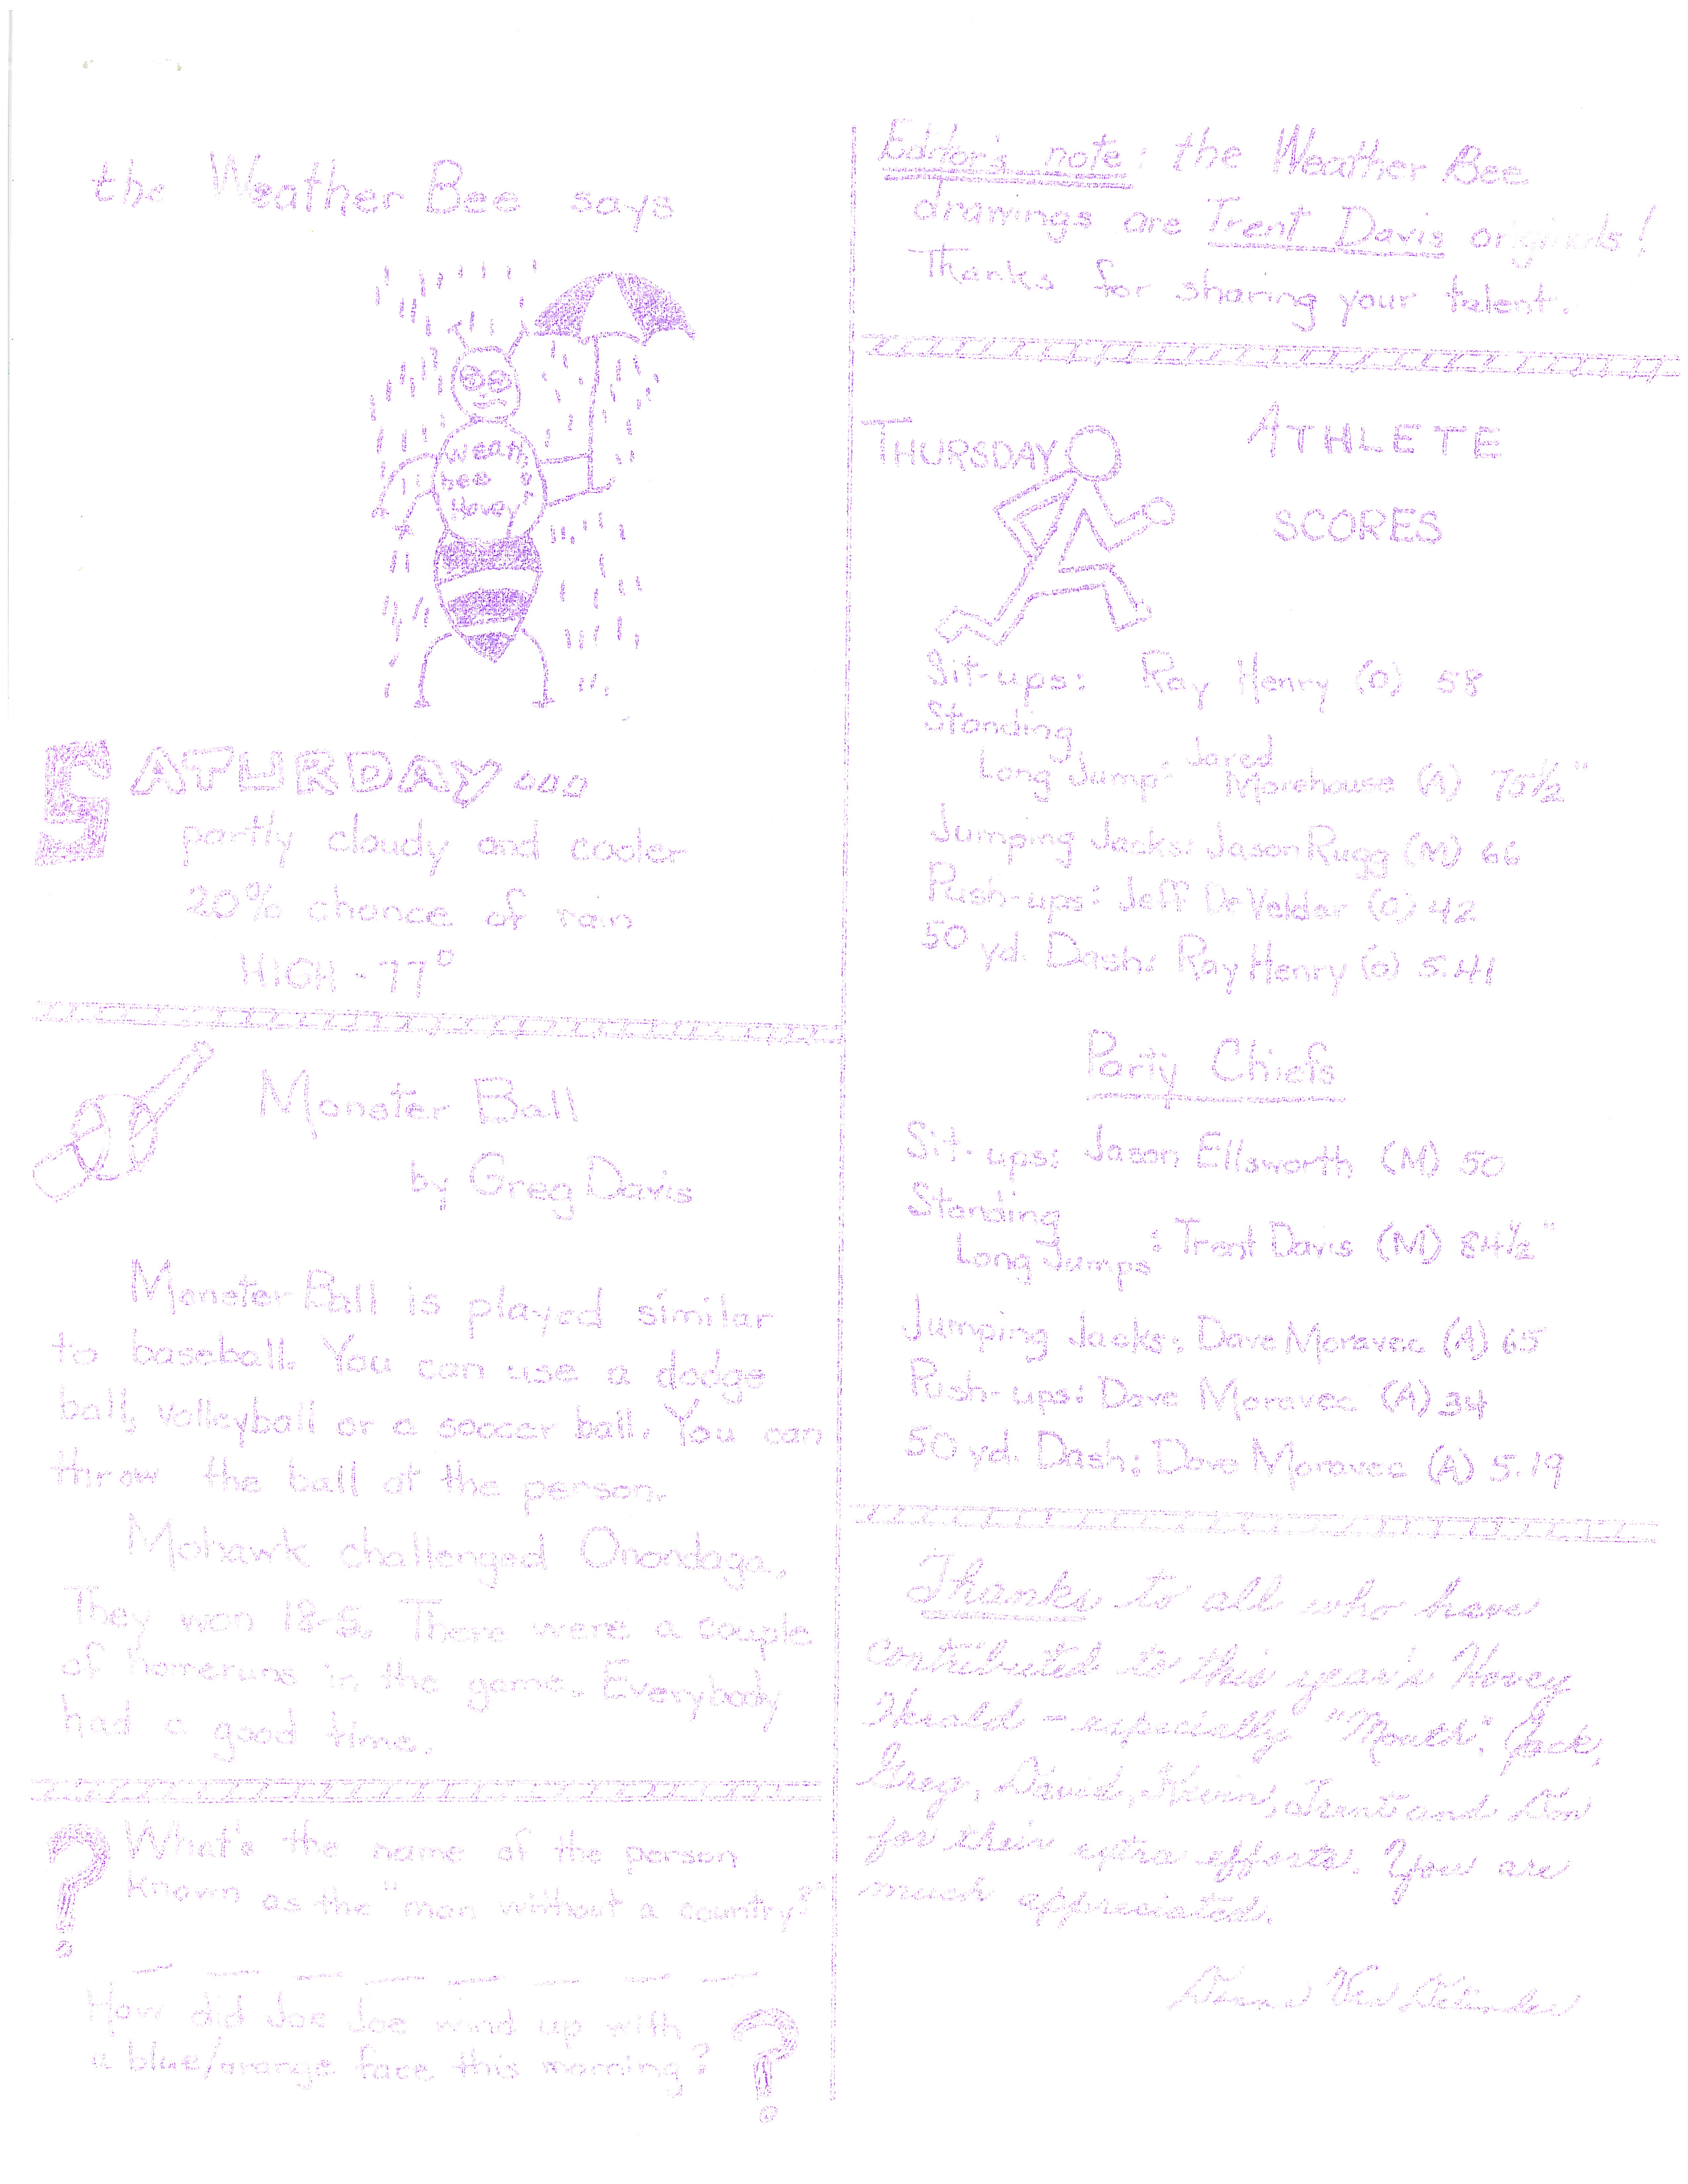 the Weather Bee says
weath
bee
Hovey
SATURDAY...
partly cloudy and cooler
20% chance of rain
HIGH - 77°
Monster Ball
by Greg Davis
Monster Ball is played similar
to baseball. You can use a dodge
ball, volleyball or a soccer ball. You can
throw the ball at the person.
Mohawk challenged Onondaga.
They won 18-5. There were a couple
of homeruns in the game. Everybody
had a good time.
What's the name of the person
known as the "man without a country?"
How did Joe Joe wind up with
a blue/orange face this morning?
Editor's note: the Weather Bee
drawings are Trent Davis originals!
Thanks for sharing your talent.
THURSDAY ATHLETE
SCORES
Sit-ups: Ray Henry (O) 58
Standing
Long Jump: Jared Morehouse (A) 75½"
Jumping Jacks: Jason Rugg (M) 66
Push-ups: Jeff DeVelder (O) 42
50 yd. Dash: Ray Henry (O) 5.41
Party Chiefs
Sit-ups: Jason Ellsworth (M) 50
Standing
Long Jumps: Trent Davis (M) 84½"
Jumping Jacks: Dave Moravec (A) 65
Push-ups: Dave Moravec (A) 34
50 yd. Dash: Dave Moravec (A) 5.19
Thanks to all who have
contributed to this year's Hovey
Herald - especially Jack,
Greg, David, Kevin, Trent and
for their extra efforts. You are
much appreciated.